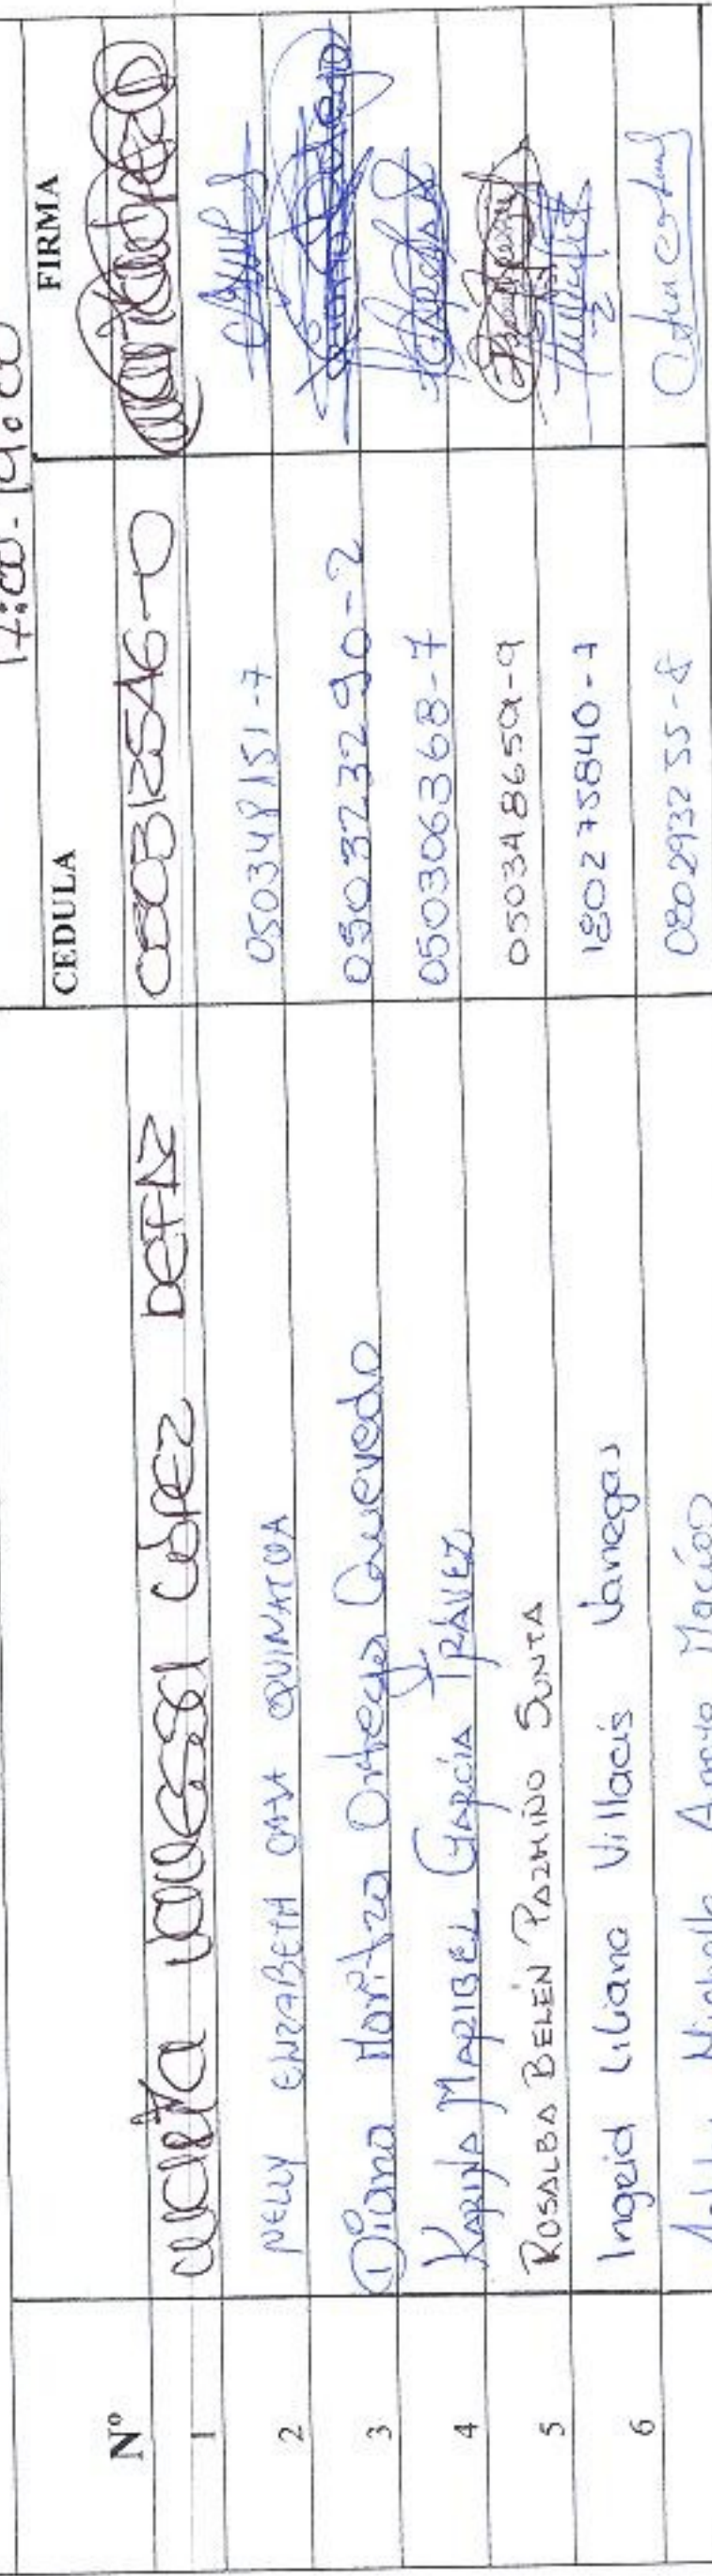 17:00-19:00
Nº CEDULA FIRMA
1 VANESSA LÓPEZ DEFAZ 050312546-0
2 NELLY ELIZABETH CASA QUINATOA 050348151-7
3 Diana Maritza Ortega Quevedo 050323290-2
4 KARINA MARIBEL GARCÍA TRÁVEZ 050306368-7
5 ROSALBA BELÉN PAZMIÑO SUNTA 050348659-9
6 Ingrid Liliana Villacis Vanegas 180275840-7
Nicholle Macías 080293255-8